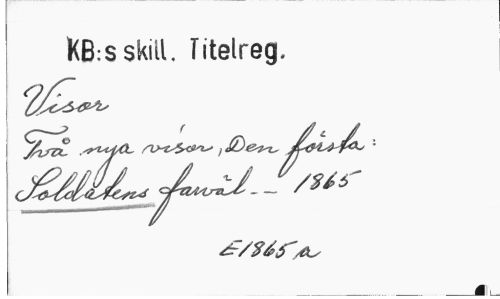 KB:s skill. Titelreg.
Visor
Två nya visor, Den första:
Soldatens farväl. -- 1865
E1865a